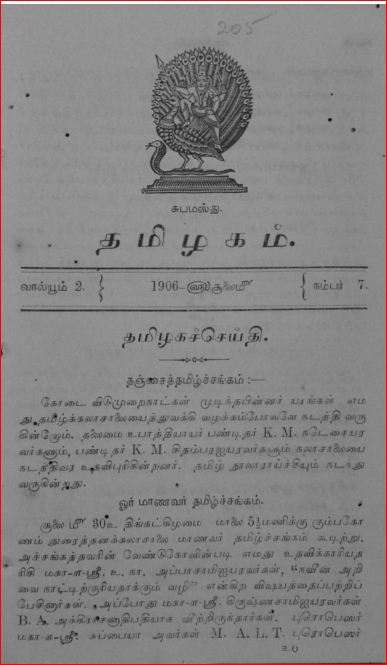 205
சுபமஸ்து.
தமிழகம்.
வால்யூம் 2. { 1906–௵ ஜூலை௴ { நம்பர் 7.
தமிழகச்செய்தி.
தஞ்சைத்தமிழ்ச்சங்கம் :—
கோடை விடுமுறைநாட்கள் முடிந்தபின்னர் யாங்கள் எம
து தமிழ்க்கலாசாலையைத்துவக்கி வழக்கம்போலவே நடத்தி வரு
கின்றோம். தலைமை உபாத்தியாயர் பண்டிதர் K. M. நடேசைய
ர்களும், பண்டிதர் K. M. சிதம்பரஐயரவர்களும் கலாசாலையை
நடத்திவர உதவிபுரிகின்றனர். தமிழ் நூலாராய்ச்சியும் நடந்து
வருகின்றது.
ஓர் மாணவர் தமிழ்ச்சங்கம்.
ஜூலை௴ 30௳ திங்கட்கிழமை மாலை 5½மணிக்கு கும்பகோ
ணம் துரைத்தனக்கலாசாலை மாணவர் தமிழ்ச்சங்கம் கூடிற்று,
அச்சங்கத்தவரின் வேண்டுகோளின்படி எமது உதவிக்காரியத
ரிசி மகா-௱-ஸ்ரீ, உ. கா. அப்பாசாமிஐயரவர்கள், “நவீன அறி
வை நாட்டிற்குரியதாக்கும் வழி” என்கிற விஷயத்தைப்பற்றிப்
பேசினார்கள். அப்போது மகா-௱-ஸ்ரீ. கிருஷ்ணசாமிஐயரவர்கள்
B. A. அக்கிராசனாதிபதியாக வீற்றிருந்தார்கள். புரொபெஸர்
மகா-௱-ஸ்ரீ. சுப்பையா அவர்கள் M. A. L. T. புரொபெஸர்
20